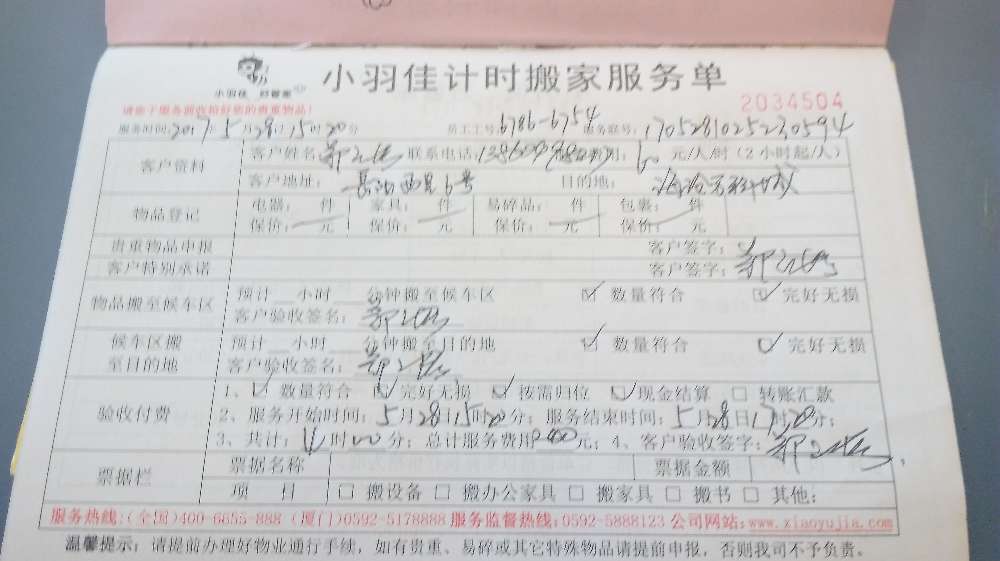 小羽佳 好管家
小羽佳计时搬家服务单
2034504
请您于服务前收拾好您的贵重物品!
服务时间:2017年5月28日15时20分 员工工号:6786-6754 服务联号:170528102523 0594
客户资料 客户姓名: 联系电话: 费用:60元/人/时(2小时起/人)
客户地址: 6号 目的地:
物品登记 电器: 件 家具: 件 易碎品: 件 包裹: 件
保价: 元 保价: 元 保价: 元 保价: 元
贵重物品申报 客户签字:
客户特别承诺 客户签字:
物品搬至候车区 预计__小时__分钟搬至候车区 ☑ 数量符合 ☑ 完好无损
客户验收签名:
候车区搬至目的地 预计__小时__分钟搬至目的地 ☑ 数量符合 ☑ 完好无损
客户验收签名:
验收付费 1、☑ 数量符合 ☑ 完好无损 ☑ 按需归位 ☑ 现金结算 □ 转账汇款
2、服务开始时间:5月28日15时20分; 服务结束时间:5月28日17时20分;
3、共计: 时00分; 总计服务费用 元; 4、客户验收签字:
票据栏 票据名称 票据金额
项 目 □ 搬设备 □ 搬办公家具 □ 搬家具 □ 搬书 □ 其他:
服务热线:(全国)400-6655-888 (厦门)0592-5178888 服务监督热线:0592-5888123 公司网站:www.xiaoyujia.com
温馨提示: 请提前办理好物业通行手续, 如有贵重、易碎或其它特殊物品请提前申报, 否则我司不予负责。